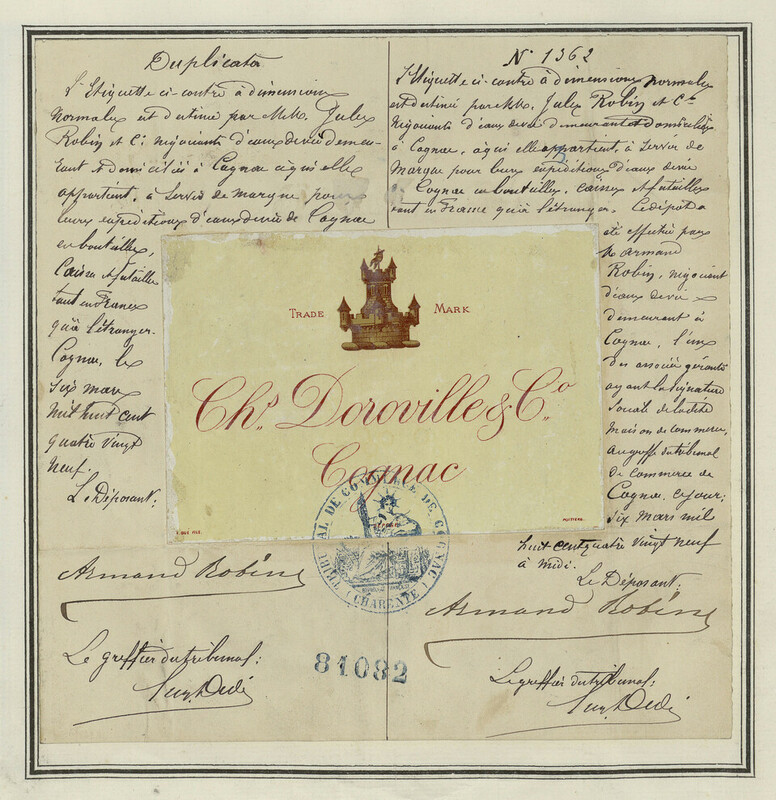 Duplicata
L'Etiquette ci-contre à dimensions
normales est destinée par MM. Jules
Robin et Cie négociants d'eaux devie demeu-
rant et domiciliés à Cognac à qui elle
appartient, à servir de marque pour
leurs expéditions d'eaux devie de Cognac
en bouteilles,
Caisses et futailles
tant en France
qu'à l'étranger.
Cognac, le
six mars
mil huit cent
quatre vingt
neuf.
Le Déposant:
Armand Robin
Le greffier du tribunal:
N° 1362
L'Etiquette ci-contre à dimensions normales
est destinée par MM. Jules Robin et Cie
Négociants d'eaux devie demeurant et domiciliés
à Cognac, à qui elle appartient, à servir de
Marque pour leurs expéditions d'eaux devie
de Cognac en bouteilles, caisses et futailles
tant en France qu'à l'étranger. Le dépot a
été effectué par
M. Armand
Robin, négociant
d'eaux devie
demeurant à
Cognac, l'un
des associés gérants
ayant la signature
sociale de la dite
maison de commerce,
au greffe du tribunal
de commerce de
Cognac, ce jour;
six mars mil
huit cent quatre vingt neuf
à midi.
Le Déposant:
Armand Robin
Le greffier du tribunal:
TRADE MARK
Chs. Doroville & Co.
Cognac
POITIERS.
TRIBUNAL DE COMMERCE DE COGNAC
(CHARENTE)
81082